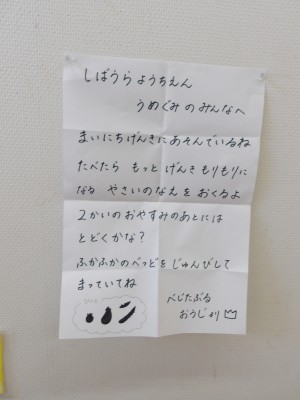 しばうらようちえん
うめぐみのみんなへ
まいにちげんきにあそんでいるね
たべたら もっと げんき もりもりに
なる やさいのなえを おくるよ
2かいのおやすみのあとには
とどくかな?
ふかふかのべっどを じゅんびして
まっていてね
べじたぶる
おうじより